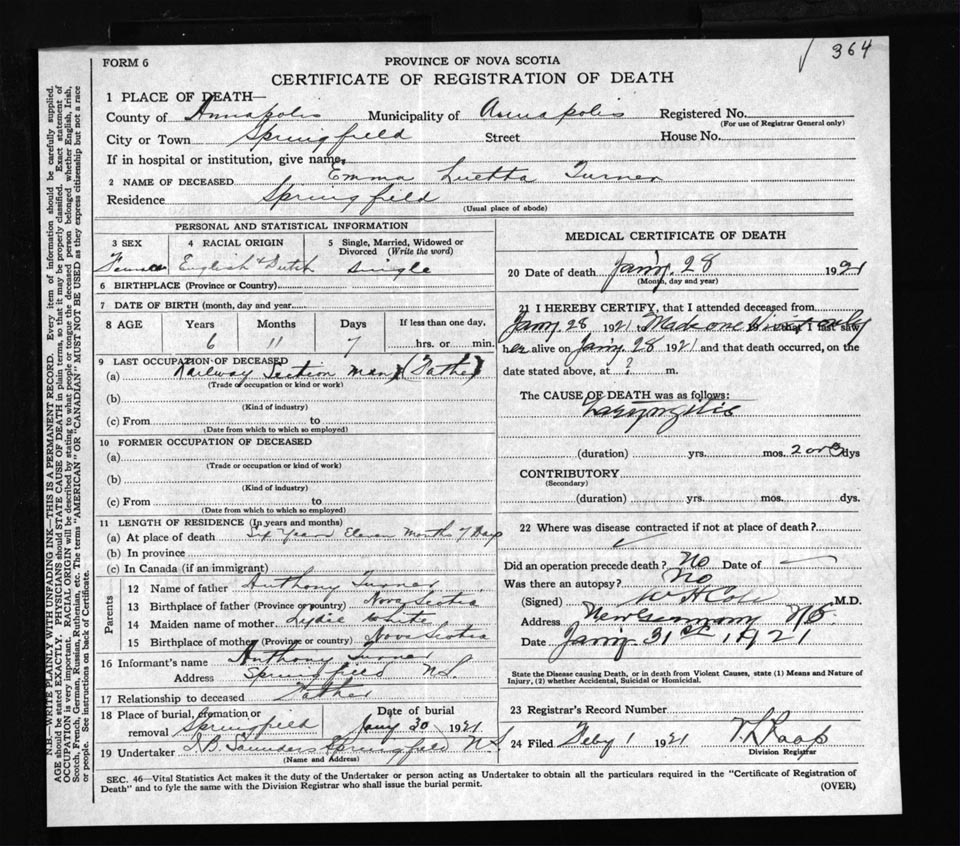 364
FORM 6
PROVINCE OF NOVA SCOTIA
CERTIFICATE OF REGISTRATION OF DEATH
1 PLACE OF DEATH—
County of Annapolis Municipality of Annapolis Registered No.
(For use of Registrar General only)
City or Town Springfield Street House No.
If in hospital or institution, give name
2 NAME OF DECEASED Emma Luetta Turner
Residence Springfield
(Usual place of abode)
PERSONAL AND STATISTICAL INFORMATION
3 SEX 4 RACIAL ORIGIN 5 Single, Married, Widowed or
Divorced (Write the word)
Female English & Dutch Single
6 BIRTHPLACE (Province or Country)
7 DATE OF BIRTH (month, day and year)
8 AGE Years Months Days If less than one day,
6 11 7 hrs. or min.
9 LAST OCCUPATION OF DECEASED
(a) Railway Section Man (Father)
(Trade or occupation or kind or work)
(b)
(Kind of industry)
(c) From to
(Date from which to which so employed)
10 FORMER OCCUPATION OF DECEASED
(a)
(Trade or occupation or kind of work)
(b)
(Kind of industry)
(c) From to
(Date from which to which so employed)
11 LENGTH OF RESIDENCE (In years and months)
(a) At place of death Six Years Eleven Months 7 Days
(b) In province
(c) In Canada (if an immigrant)
Parents
12 Name of father Anthony Turner
13 Birthplace of father (Province or country) Nova Scotia
14 Maiden name of mother Lydie White
15 Birthplace of mother (Province or country) Nova Scotia
16 Informant's name Anthony Turner
Address Springfield N.S.
17 Relationship to deceased Father
18 Place of burial, cremation or Date of burial
removal Springfield Jany 30 1921
19 Undertaker Saunders Springfield N.S
(Name and Address)
MEDICAL CERTIFICATE OF DEATH
20 Date of death Jan'y. 28 1921
(Month, day and year)
21 I HEREBY CERTIFY, that I attended deceased from
Jan'y 28 1921 to Made one Visit only that I last saw
her alive on Jan'y. 28 1921 and that death occurred, on the
date stated above, at ? m.
The CAUSE OF DEATH was as follows:
Laryngitis
(duration) yrs. mos. 2 or 3 dys
CONTRIBUTORY
(Secondary)
(duration) yrs. mos. dys.
22 Where was disease contracted if not at place of death?
Did an operation precede death? No Date of —
Was there an autopsy? No
(Signed) W H Cole M.D.
Address New Germany N.S.
Date Jan'y 31st, 1921
State the Disease causing Death, or in death from Violent Causes, state (1) Means and Nature of
Injury, (2) whether Accidental, Suicidal or Homicidal.
23 Registrar's Record Number
24 Filed Feby 1 1921 Roop
Division Registrar
SEC. 46—Vital Statistics Act makes it the duty of the Undertaker or person acting as Undertaker to obtain all the particulars required in the "Certificate of Registration of
Death" and to fyle the same with the Division Registrar who shall issue the burial permit.
(OVER)
N.B.—WRITE PLAINLY WITH UNFADING INK—THIS IS A PERMANENT RECORD. Every item of information should be carefully supplied.
AGE should be stated EXACTLY. PHYSICIANS should STATE CAUSE OF DEATH in plain terms, so that it may be properly classified. Exact statement of
OCCUPATION is very important. RACIAL ORIGIN will be described by stating to what people or tongue the deceased person belonged whether English, Irish,
Scotch, French, German, Russian, Ruthenian, etc. The terms "AMERICAN" OR "CANADIAN" MUST NOT BE USED as they express citizenship but not a race
or people. See instructions on back of Certificate.